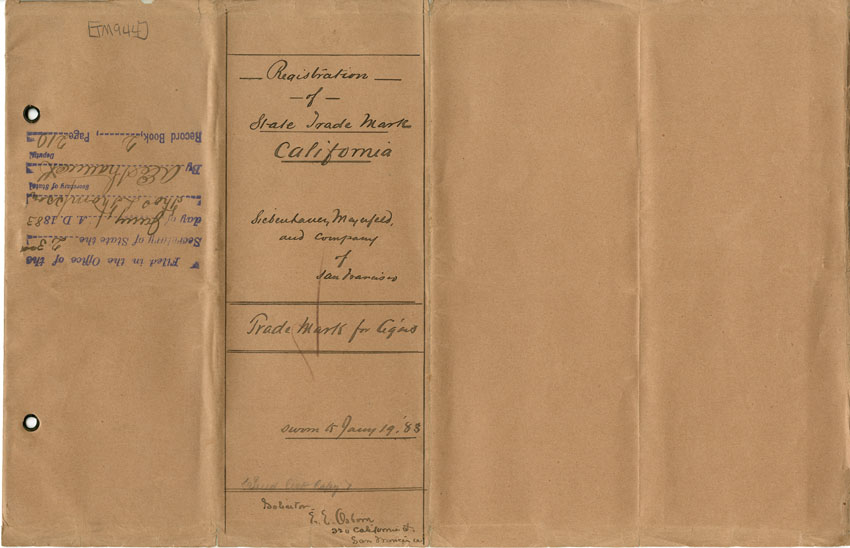 [TM944]
Registration
of
State Trade Mark
California
Siebenhauer, Maynfeld,
and Company
of
San Francisco
Trade Mark for Cigars
Sworn to Jany 19, '83
Solicitor
E. E. Osborn
California St.
San Francisco
Filed in the Office of the
Secretary of State the
day of Jany A. D. 1883
Thos. L. Thompson
Secretary of State
By
Deputy
Record Book, 2, Page 210